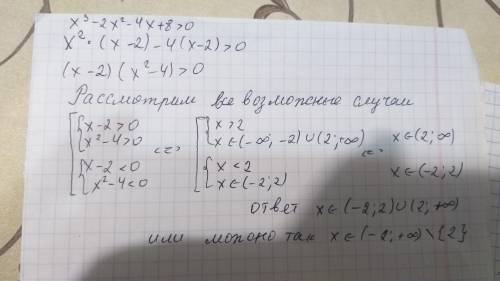 x³-2x²-4x+8>0
x²·(x-2)-4(x-2)>0
(x-2)(x²-4)>0
Рассмотрим все возможные случаи
[{x-2>0 <=> [{x>2 <=> x∈(2;∞)
x²-4>0 x∈(-∞,-2)∪(2;+∞)
{x-2<0 {x<2 x∈(-2;2)
x²-4<0 x∈(-2;2)
ответ x∈(-2;2)∪(2;+∞)
или можно так x∈(-2;+∞)\{2}